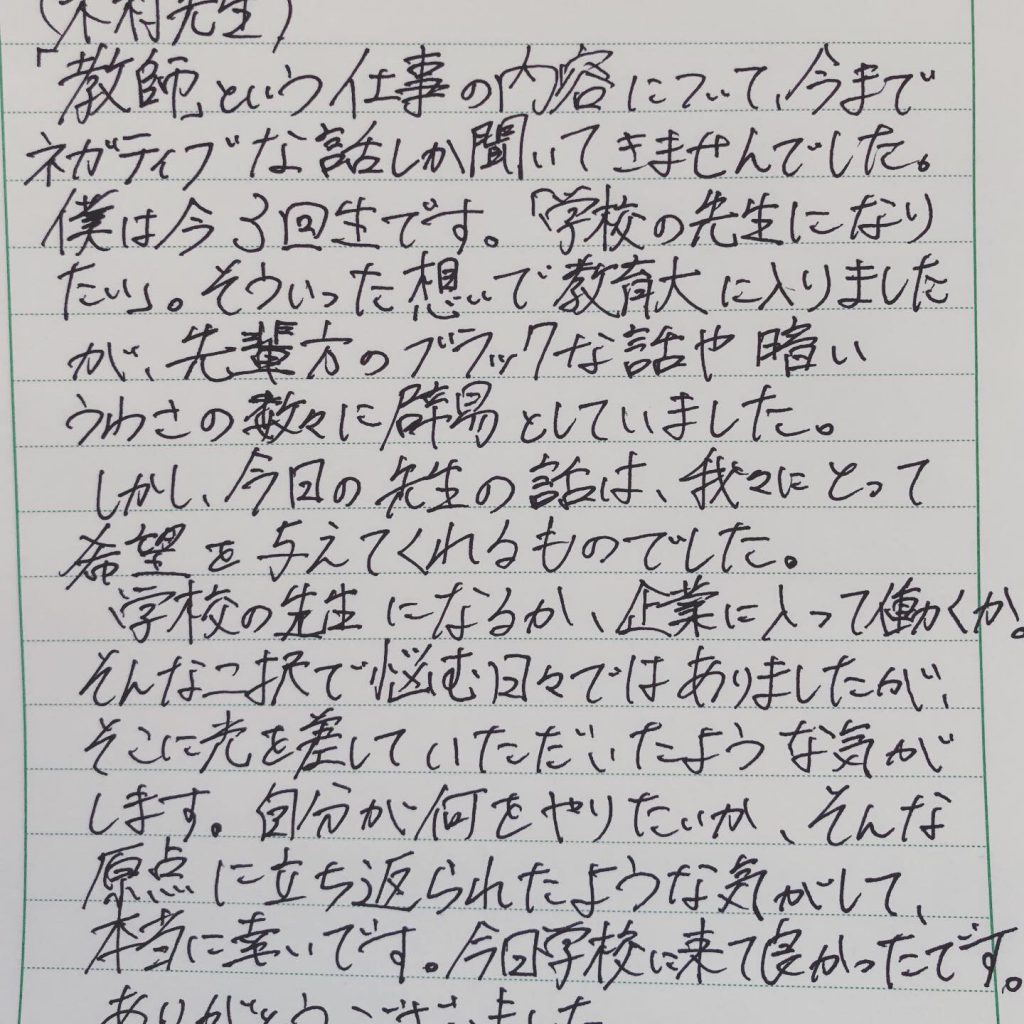 (木村先生)
「教師」という仕事の内容について、今まで
ネガティブな話しか聞いてきませんでした。
僕は今3回生です。「学校の先生になり
たい」。そういった想いで教育大に入りました
が、先輩方のブラックな話や暗い
うわさの数々に辟易としていました。
しかし、今日の先生の話は、我々にとって
希望を与えてくれるものでした。
学校の先生になるか、企業に入って働くか。
そんな二択で悩む日々ではありましたが、
そこに光を差していただいたような気が
します。自分が何をやりたいか、そんな
原点に立ち返られたような気がして、
本当に幸いです。今日学校に来て良かったです。
ありがとうございました